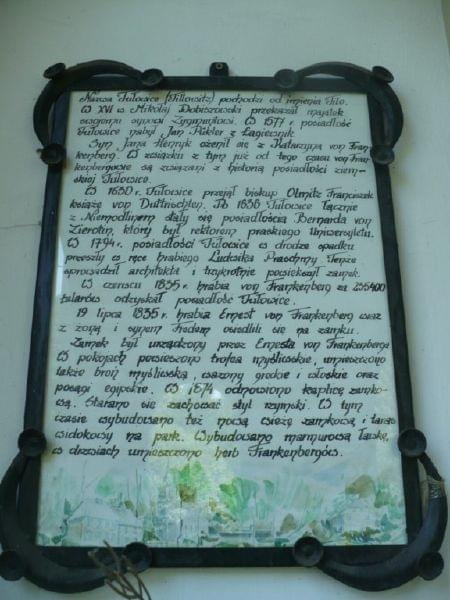 Nazwa Tułowice (Tillowitz) pochodzi od imienia Tilo.
W XVI w Mikołaj Dobiszowski przekazał majątek
swojemu synowi Zygmuntowi. W 1577 r. posiadłość
Tułowice nabył Jan Pükler z Łagiewnik
Syn Jana Henryk ożenił się z Katarzyną von Fran-
kenberg. W związku z tym już od tego czasu von Fran-
kenbergowie są związani z historią posiadłości ziem-
skiej Tułowice.
W 1650 r. Tułowice przejął biskup Olmitz Franciszek
książę von Duttrischten. Po 1656 Tułowice łącznie
z Niemodlinem stały się posiadłością Bernarda von
Zierotin, który był rektorem praskiego Uniwersytetu.
W 1794 r. posiadłości Tułowice w drodze spadku
przeszły w ręce hrabiego Ludwika Praschmy Tenże
sprowadził architekta i trzykrotnie powiększył zamek.
W czerwcu 1835 r. hrabia von Frankenberg za 235400
talarów odzyskał posiadłość Tułowice.
19 lipca 1835 r. hrabia Ernest von Frankenberg wraz
z żoną i synem Fredem osiedlili się na zamku.
Zamek był urządzony przez Ernesta von Frankenberga
W pokojach powieszono trofea myśliwskie, umieszczono
także broń myśliwską, wazony greckie i włoskie oraz
posągi egipskie. W 1874 odnowiono kaplicę zamko-
wą. Starano się zachować styl rzymski. W tym
czasie wybudowano też nową wieżę zamkową i taras
widokowy na park. Wybudowano marmurową ławkę,
w drzwiach umieszczono herb Frankenbergów.